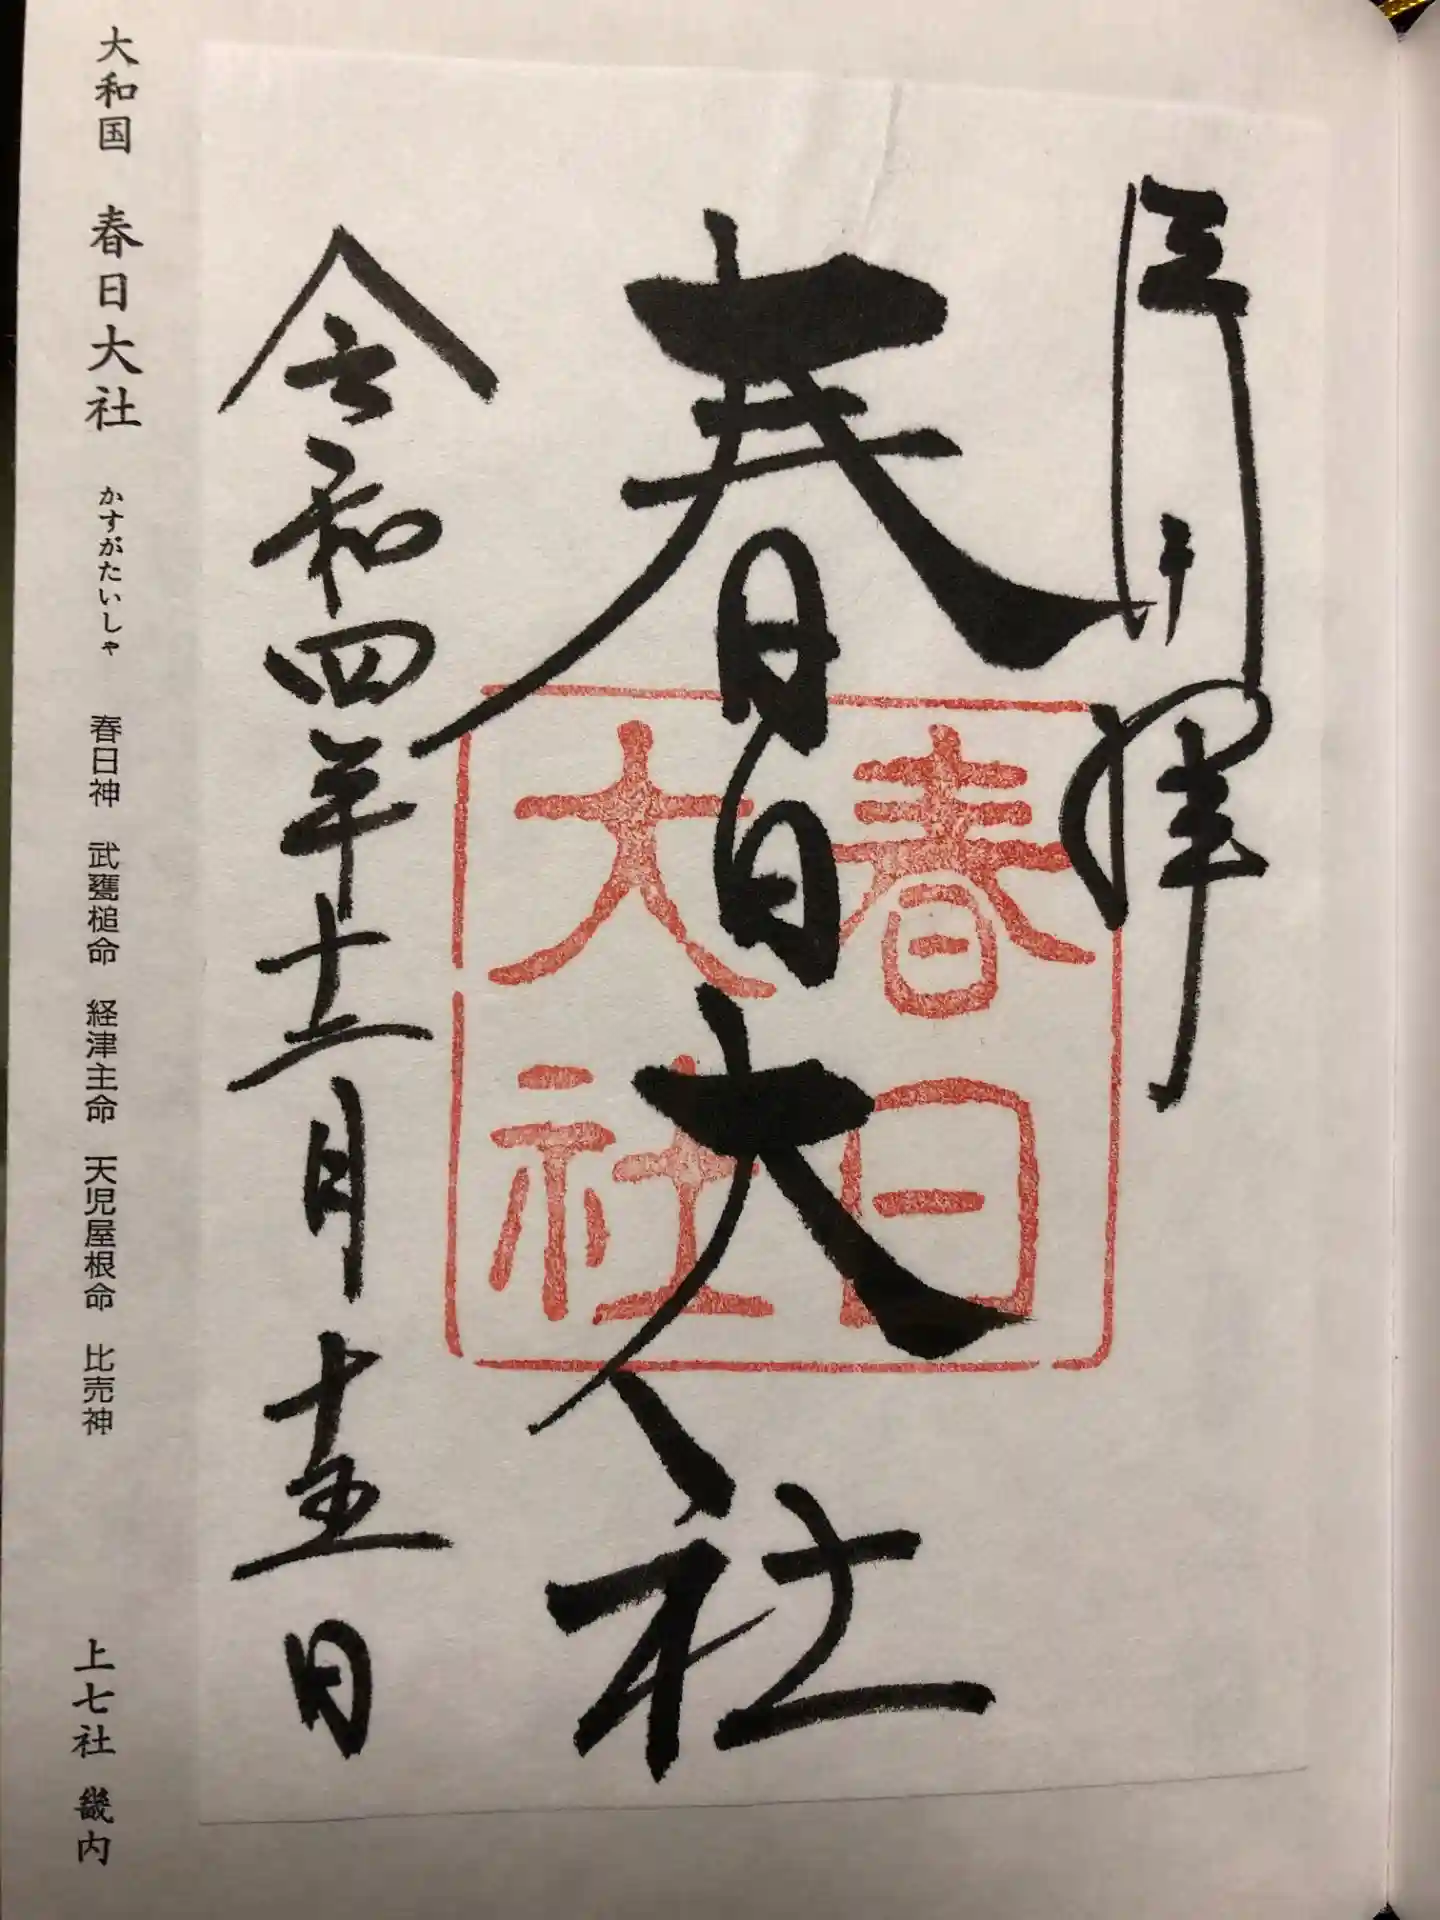 拝
春日大社
春日
大社
令和四年十二月十五日
大和国 春日大社 かすがたいしゃ 春日神 武甕槌命 経津主命 天児屋根命 比売神 上七社 畿内